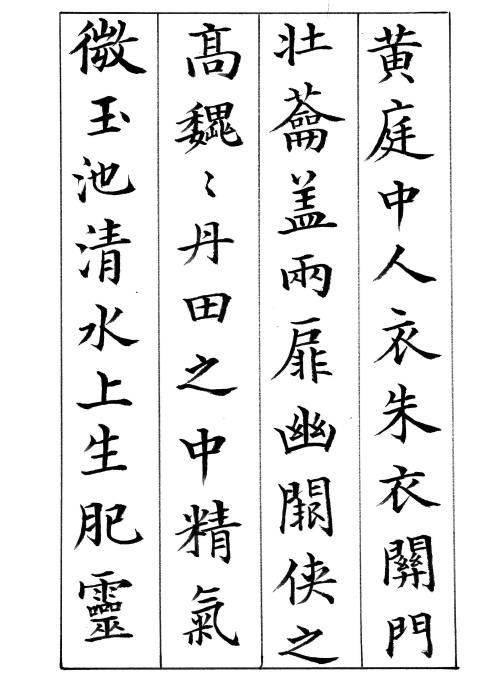 黄庭中人衣朱衣關門
壯蘥盖兩扉幽闕侠之
高巍〻丹田之中精氣
微玉池清水上生肥靈